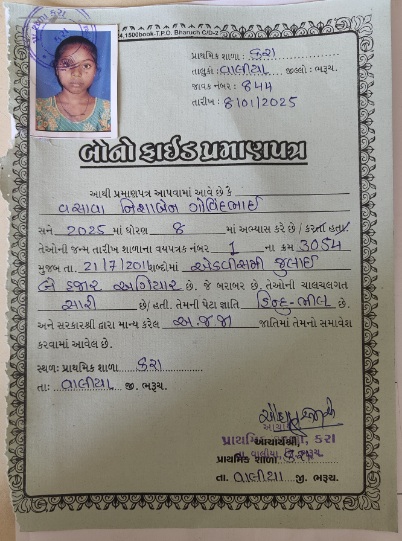 1500book-T.P.O. Bharuch C/D-2
પ્રાથમિક શાળા : કરા
તાલુકો : વાલીયા જીલ્લો : ભરૂચ.
જાવક નંબર : 844
તારીખ : 8/01/2025
બોનો ફાઈડ પ્રમાણપત્ર
આથી પ્રમાણપત્ર આપવામાં આવે છે કે
વસાવા નિશાબેન ગોવિંદભાઈ
સને 2025 માં ધોરણ 8 માં અભ્યાસ કરે છે / કરતા હતા.
તેઓની જન્મ તારીખ શાળાના વયપત્રક નંબર 1 ના ક્રમ 3054
મુજબ તા. 21/7/2011 શબ્દોમાં એકવીસમી જુલાઈ
બે હજાર અગિયાર છે. જે બરાબર છે. તેઓની ચાલચલગત
સારી છે/હતી. તેમની પેટા જ્ઞાતિ હિન્દુ-ભીલ છે.
અને સરકારશ્રી દ્વારા માન્ય કરેલ અ.જ.જા જાતિમાં તેમનો સમાવેશ
કરવામાં આવેલ છે.
સ્થળઃ પ્રાથમિક શાળા કરા
તાઃ વાલીયા જી. ભરૂચ.
આચાર્યશ્રી,
પ્રાથમિક શાળા, કરા
તા. વાલીયા, જી. ભરૂચ
પ્રાથમિક શાળા કરા
તા. વાલીયા જી. ભરૂચ.